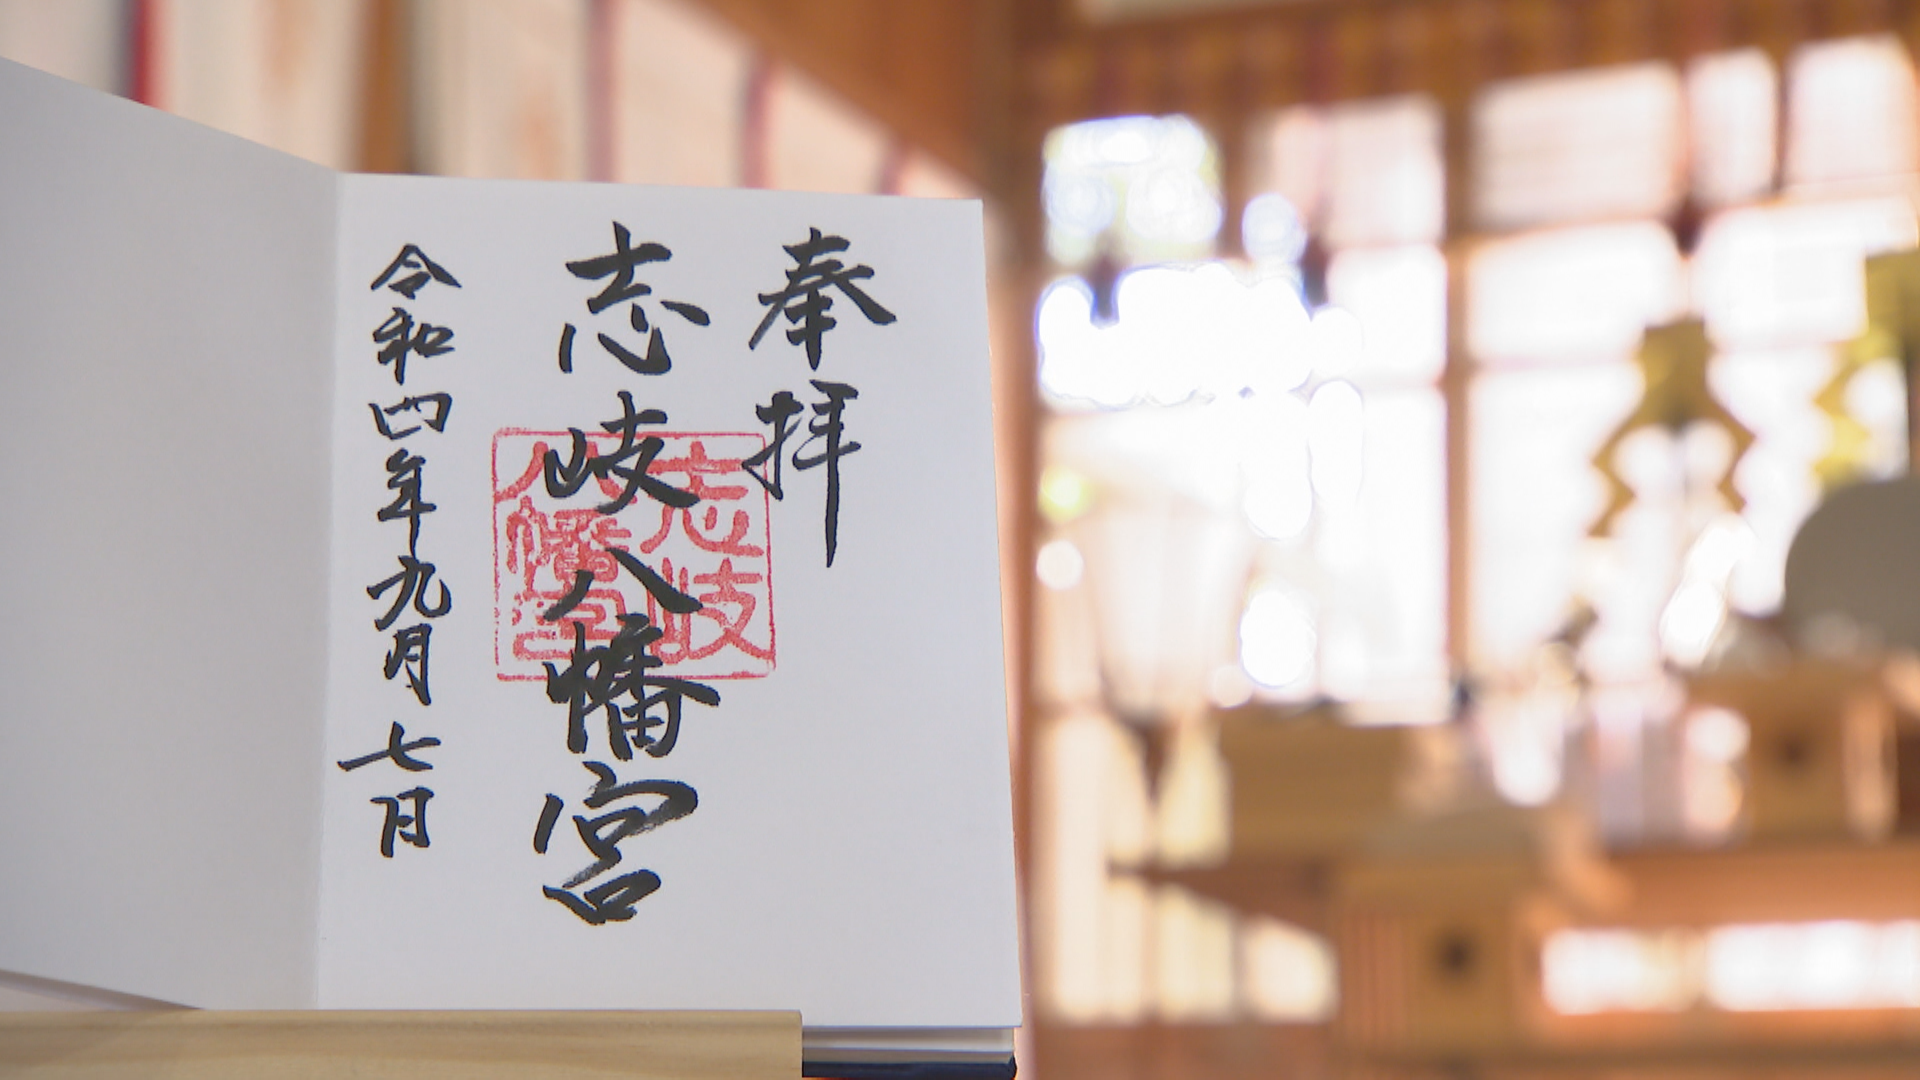 奉拝
志岐八幡宮
志岐
八幡宮
令和四年九月七日